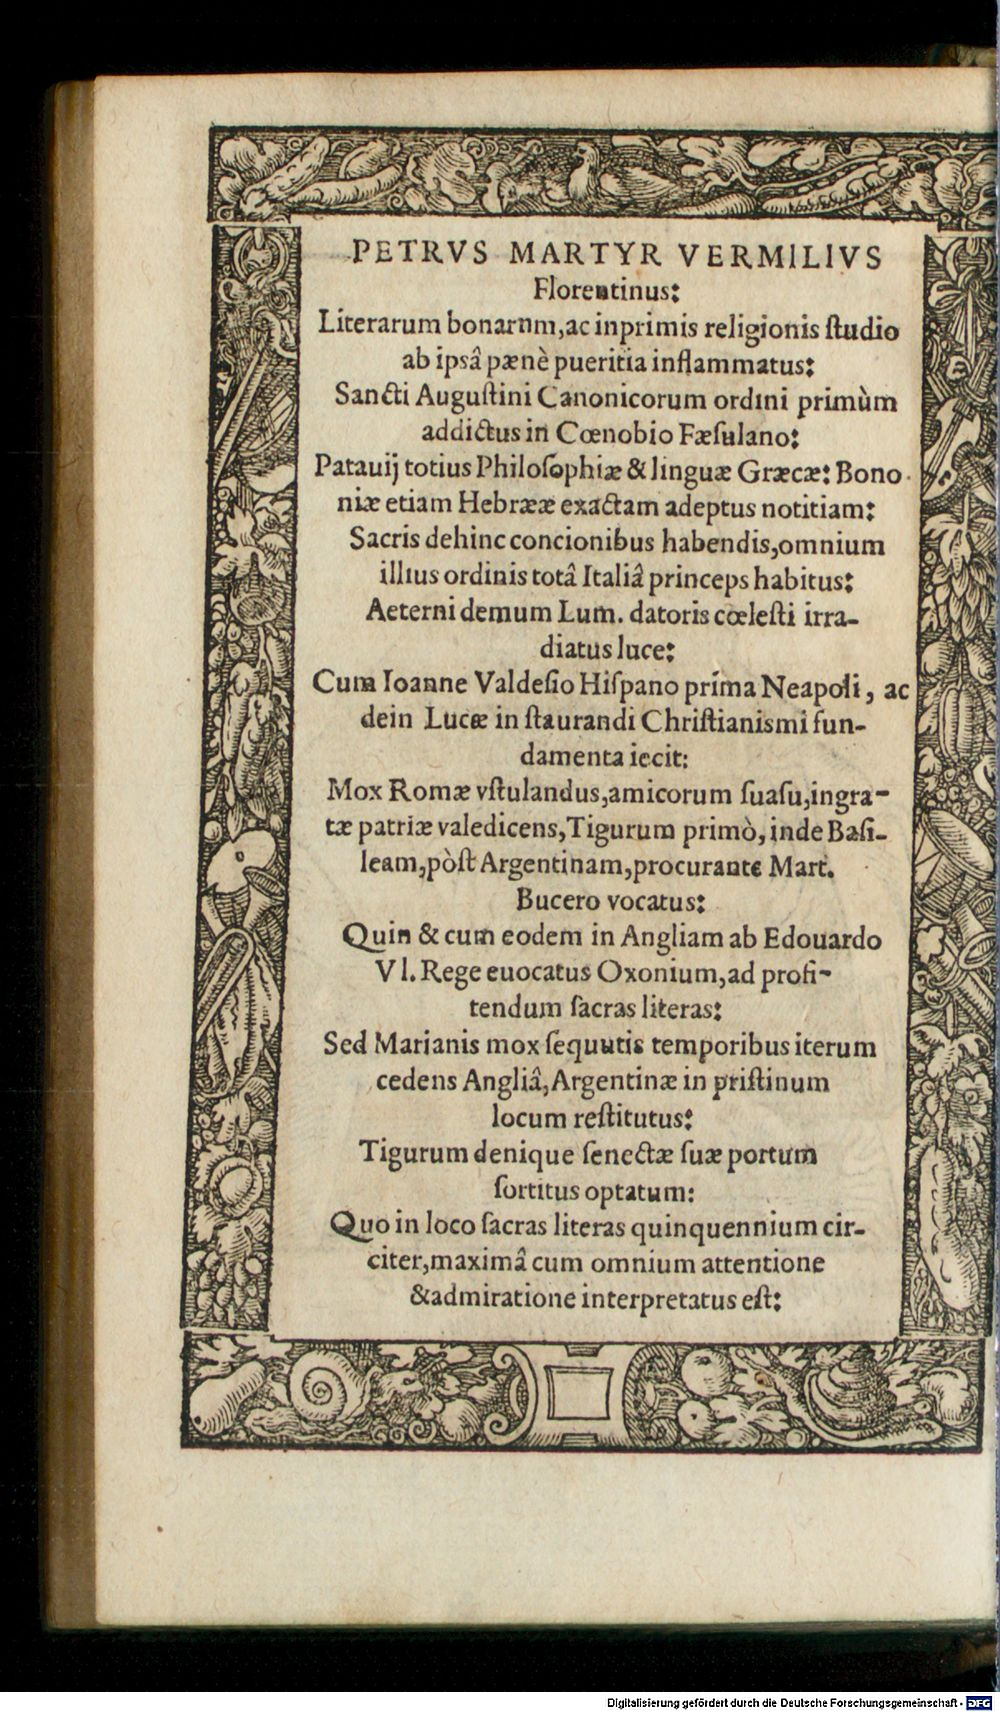 PETRVS MARTYR VERMILIVS
Florentinus:
Literarum bonarum, ac inprimis religionis ſtudio
ab ipsâ pænè pueritia inflammatus:
Sancti Auguſtini Canonicorum ordini primùm
addictus in Cœnobio Fæſulano:
Patauij totius Philoſophiæ & linguæ Græcæ: Bono-
niæ etiam Hebrææ exactam adeptus notitiam:
Sacris dehinc concionibus habendis, omnium
illius ordinis totâ Italiâ princeps habitus:
Aeterni demum Lum. datoris cœleſti irra-
diatus luce:
Cum Ioanne Valdeſio Hiſpano prima Neapoli, ac
dein Lucæ in ſtaurandi Chriſtianismi fun-
damenta iecit:
Mox Romæ vſtulandus, amicorum ſuaſu, ingra-
tæ patriæ valedicens, Tigurum primò, inde Baſi-
leam, pòſt Argentinam, procurante Mart.
Bucero vocatus:
Quin & cum eodem in Angliam ab Edouardo
VI. Rege euocatus Oxonium, ad profi-
tendum ſacras literas:
Sed Marianis mox ſequutis temporibus iterum
cedens Angliâ, Argentinæ in priſtinum
locum reſtitutus:
Tigurum denique ſenectæ ſuæ portum
ſortitus optatum:
Quo in loco ſacras literas quinquennium cir-
citer, maximâ cum omnium attentione
& admiratione interpretatus eſt:
Digitalisierung gefördert durch die Deutsche Forschungsgemeinschaft - DFG